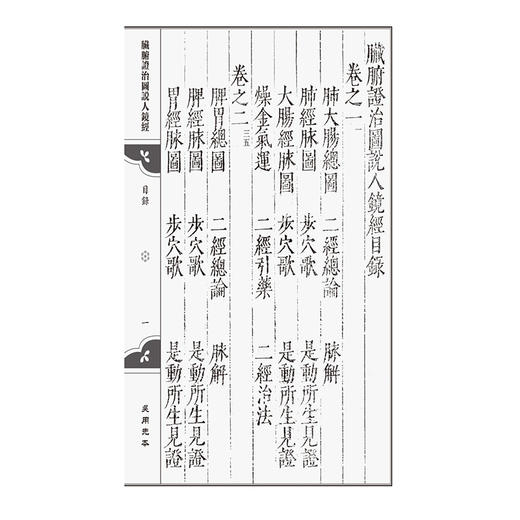 臟腑證治圖說人鏡經目錄
卷之一 一
肺大腸總圖 二經總論 脉解
肺經脉圖 步穴歌 是動所生見證
大腸經脉圖 步穴歌 是動所生見證
燥金氣運 二經引藥 二經治法
卷之二 三五
脾胃總圖 二經總論 脉解
脾經脉圖 步穴歌 是動所生見證
胃經脉圖 步穴歌 是動所生見證
臟腑證治圖說人鏡經
目錄
一
吳用光本